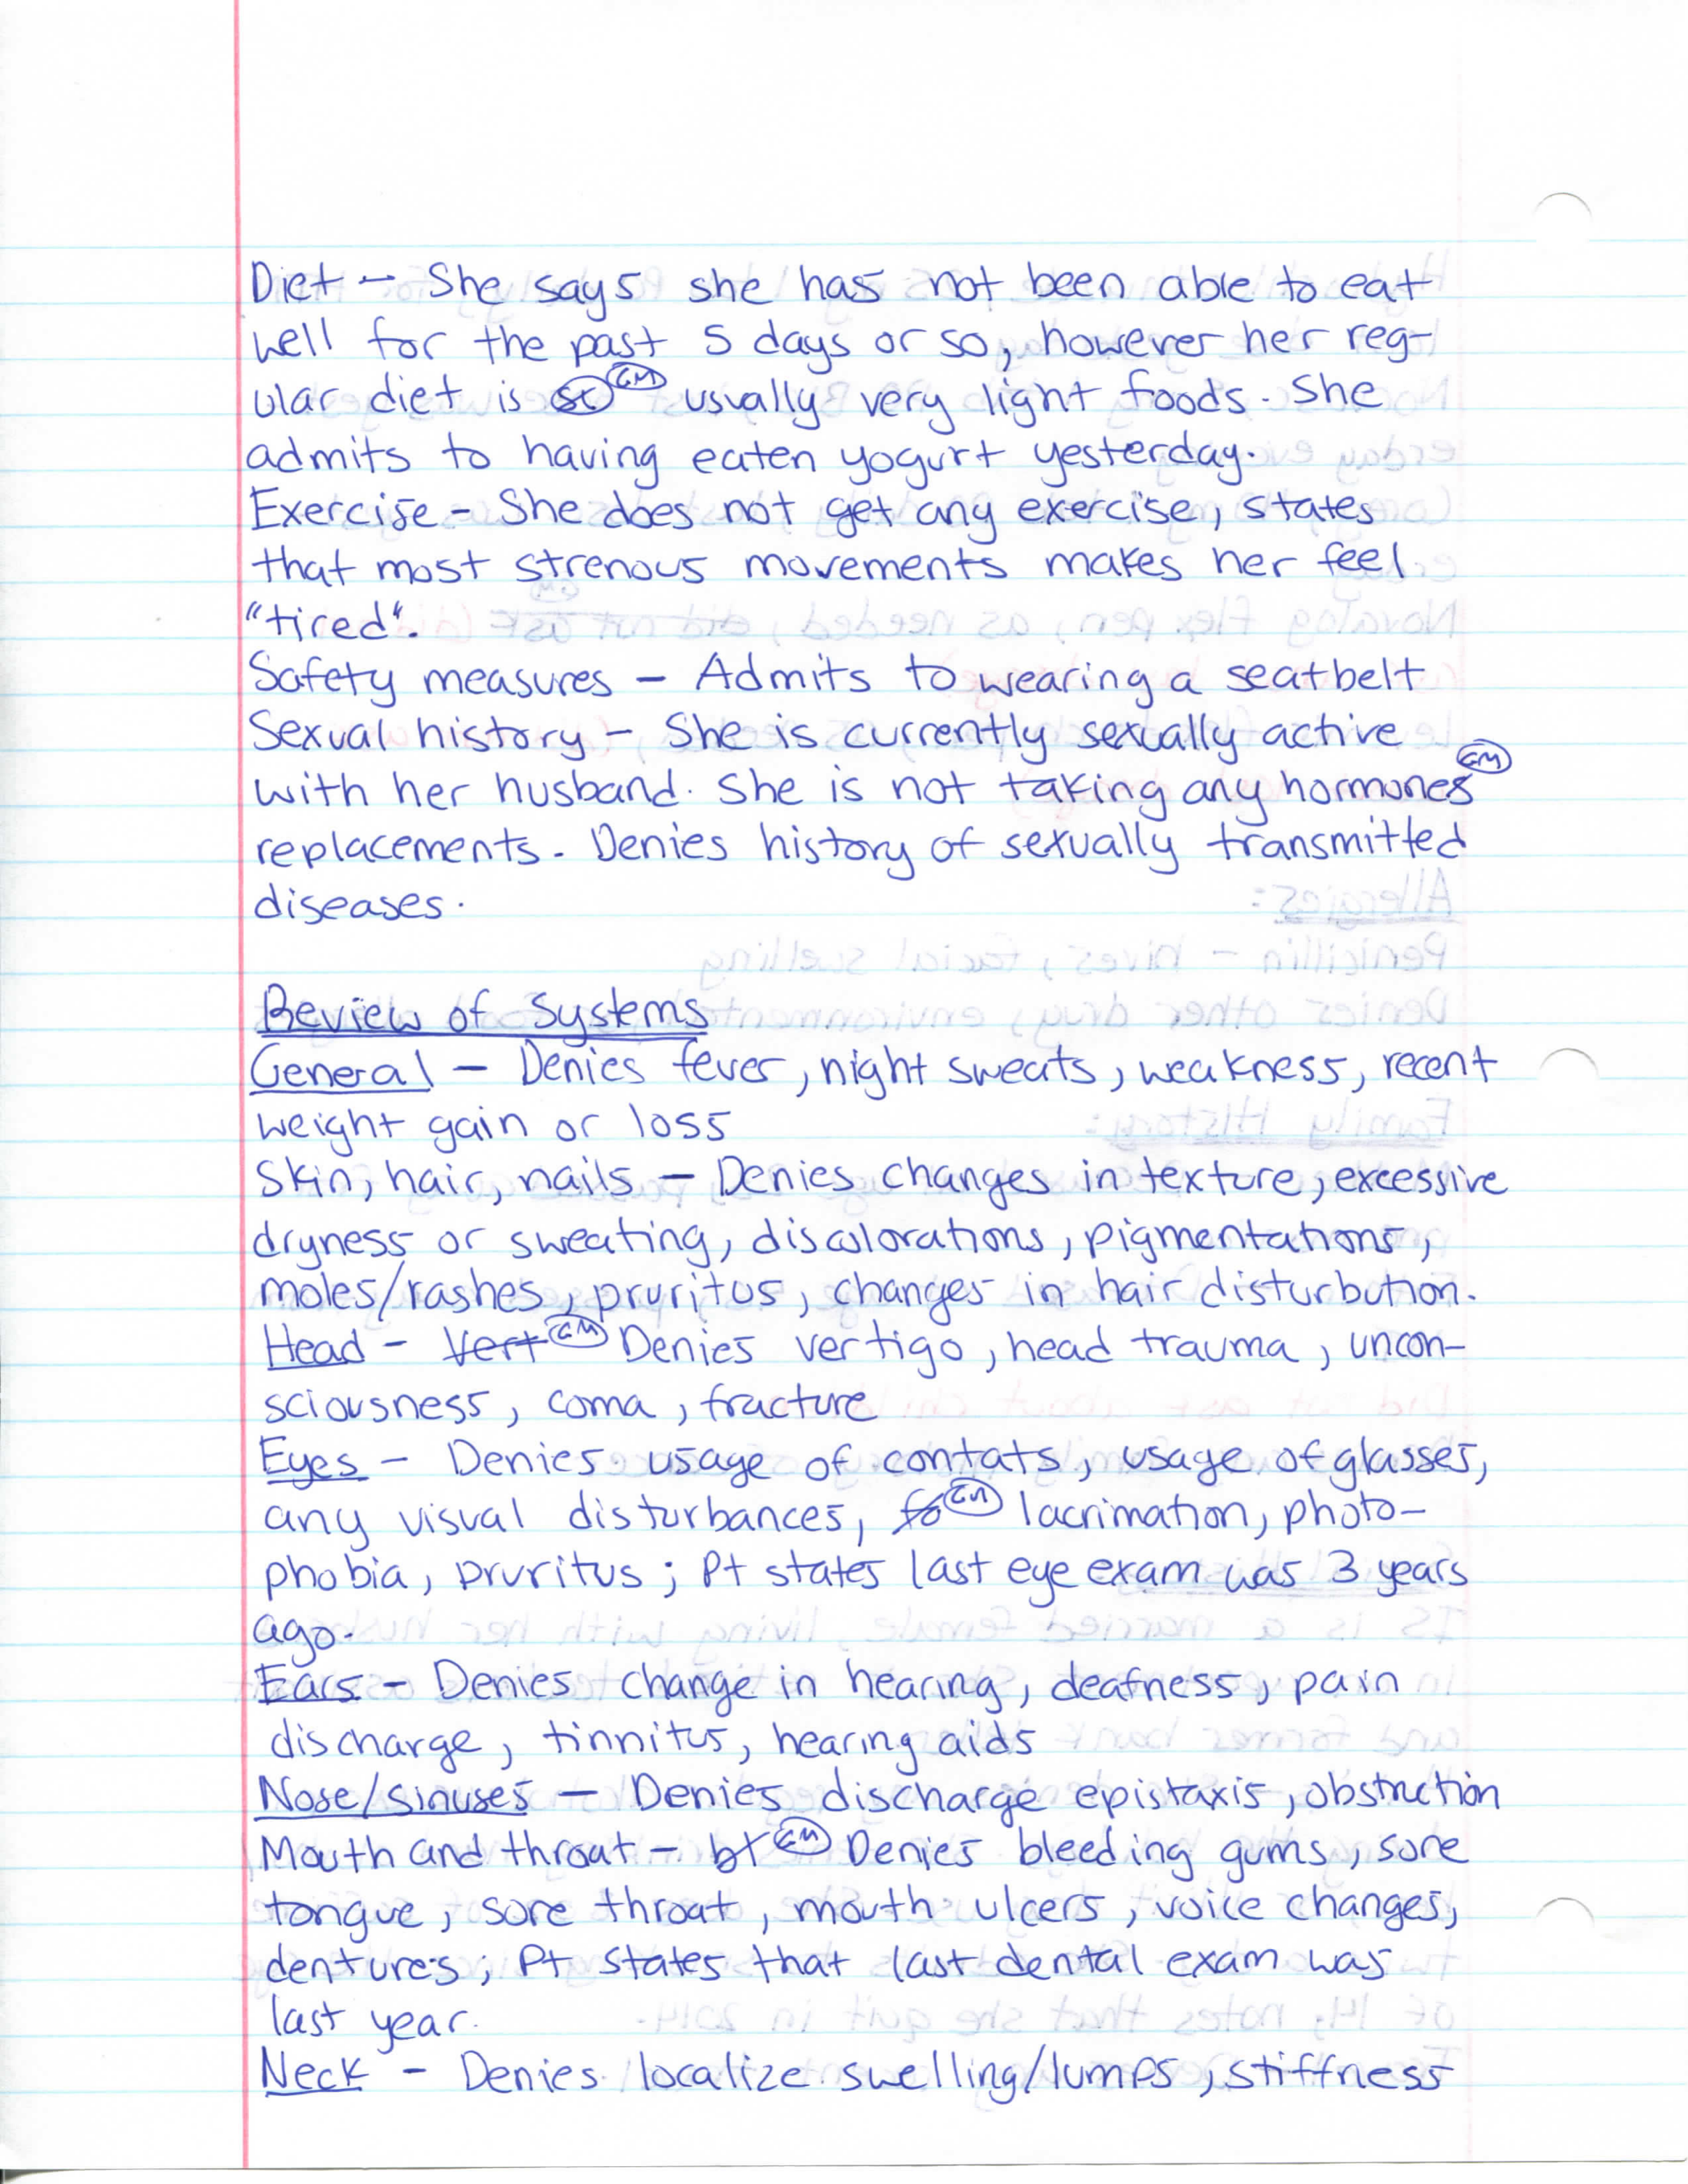 Diet - She says she has not been able to eat
well for the past 5 days or so, however her reg-
ular diet is GM usually very light foods. She
admits to having eaten yogurt yesterday.
Exercise - She does not get any exercise, states
that most strenous movements makes her feel
"tired".
Safety measures - Admits to wearing a seatbelt
Sexual history - She is currently sexually active
with her husband. She is not taking any hormones GM
replacements. Denies history of sexually transmitted
diseases.
Review of Systems
General - Denies fever, night sweats, weakness, recent
weight gain or loss
Skin, hair, nails - Denies changes in texture, excessive
dryness or sweating, discolorations, pigmentations,
moles/rashes, pruritus, changes in hair disturbution.
Head - Vert GM Denies vertigo, head trauma, uncon-
sciousness, coma, fracture
Eyes - Denies usage of contats, usage of glasses,
any visual disturbances, fo GM lacrimation, photo-
phobia, pruritus; Pt states last eye exam was 3 years
ago.
Ears - Denies change in hearing, deafness, pain
discharge, tinnitus, hearing aids
Nose/sinuses - Denies discharge epistaxis, obstruction
Mouth and throat - bl GM Denies bleeding gums, sore
tongue, sore throat, mouth ulcers, voice changes,
dentures; Pt states that last dental exam was
last year.
Neck - Denies localize swelling/lumps, stiffness